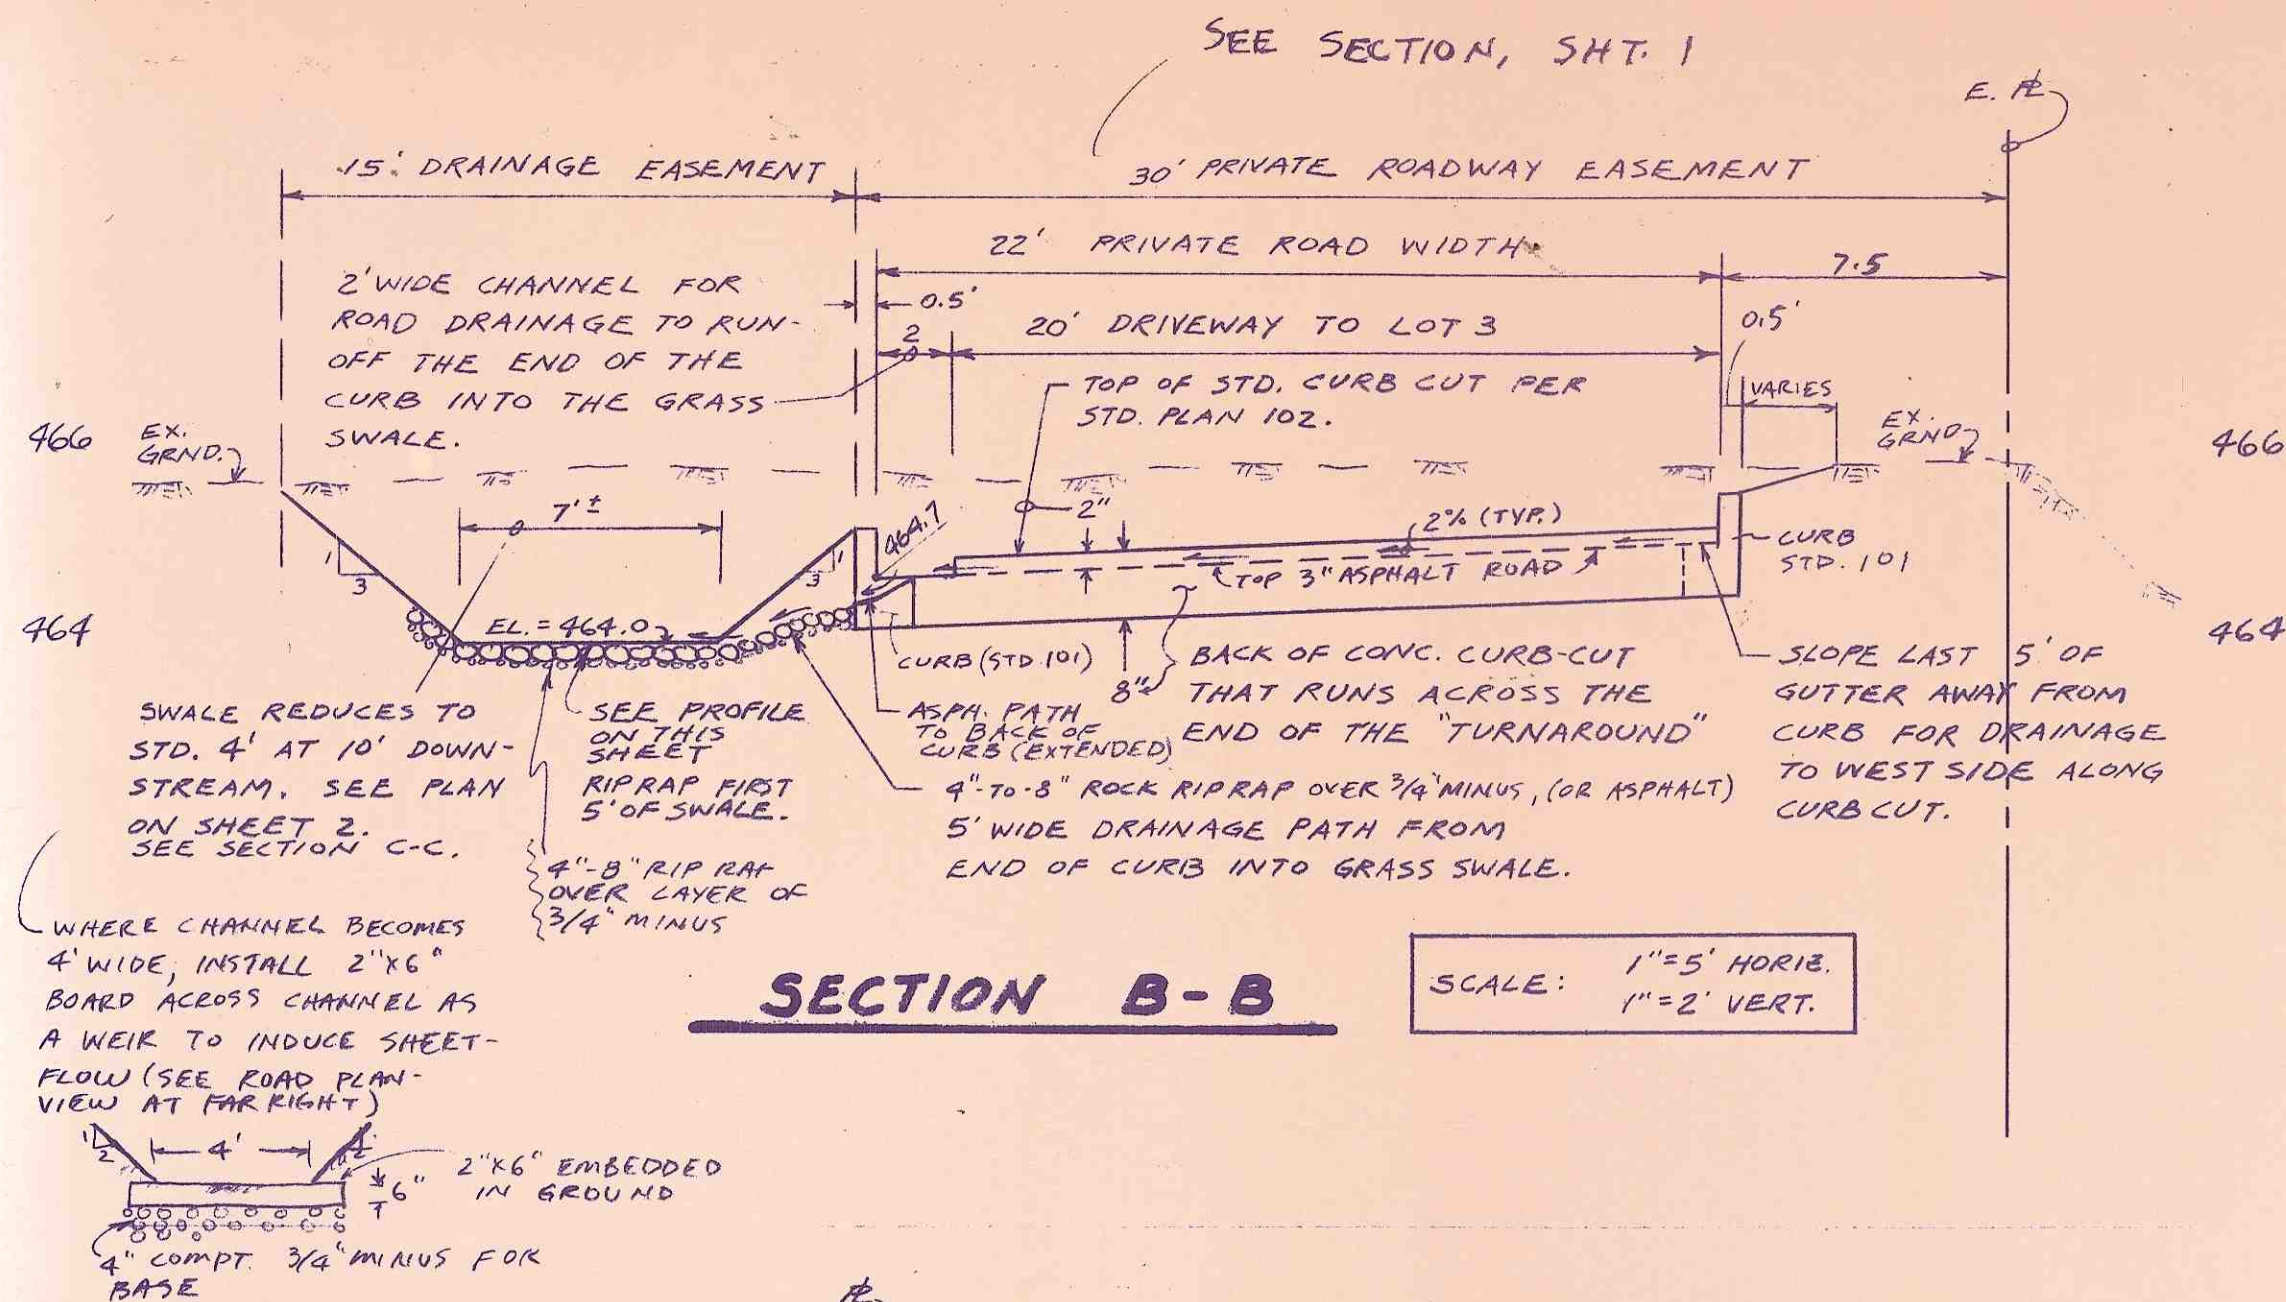 SEE SECTION, SHT. 1
E. PL
15' DRAINAGE EASEMENT
30' PRIVATE ROADWAY EASEMENT
22' PRIVATE ROAD WIDTH
7.5
2' WIDE CHANNEL FOR
ROAD DRAINAGE TO RUN-
OFF THE END OF THE
CURB INTO THE GRASS
SWALE.
0.5'
2
20' DRIVEWAY TO LOT 3
0.5'
VARIES
TOP OF STD. CURB CUT PER
STD. PLAN 102.
466
EX.
GRND.
EX.
GRND.
466
7'±
464.7
2"
2% (TYP.)
TOP 3" ASPHALT ROAD
CURB
STD. 101
1
3
1
3
464
EL. = 464.0
464
CURB (STD 101)
8"
BACK OF CONC. CURB-CUT
THAT RUNS ACROSS THE
END OF THE "TURNAROUND"
SLOPE LAST 5' OF
GUTTER AWAY FROM
CURB FOR DRAINAGE
TO WEST SIDE ALONG
CURB CUT.
SWALE REDUCES TO
STD. 4' AT 10' DOWN-
STREAM. SEE PLAN
ON SHEET 2.
SEE SECTION C-C.
SEE PROFILE
ON THIS
SHEET
RIPRAP FIRST
5' OF SWALE.
ASPH. PATH
TO BACK OF
CURB (EXTENDED)
4"-TO-8" ROCK RIPRAP OVER 3/4" MINUS, (OR ASPHALT)
5' WIDE DRAINAGE PATH FROM
END OF CURB INTO GRASS SWALE.
4"-8" RIP RAP
OVER LAYER OF
3/4" MINUS
WHERE CHANNEL BECOMES
4' WIDE, INSTALL 2"X6"
BOARD ACROSS CHANNEL AS
A WEIR TO INDUCE SHEET-
FLOW (SEE ROAD PLAN-
VIEW AT FAR RIGHT)
SECTION B-B
SCALE: 1"=5' HORIZ.
1"=2' VERT.
1
2
4'
6"
2"X6" EMBEDDED
IN GROUND
4" COMPT. 3/4" MINUS FOR
BASE
PL